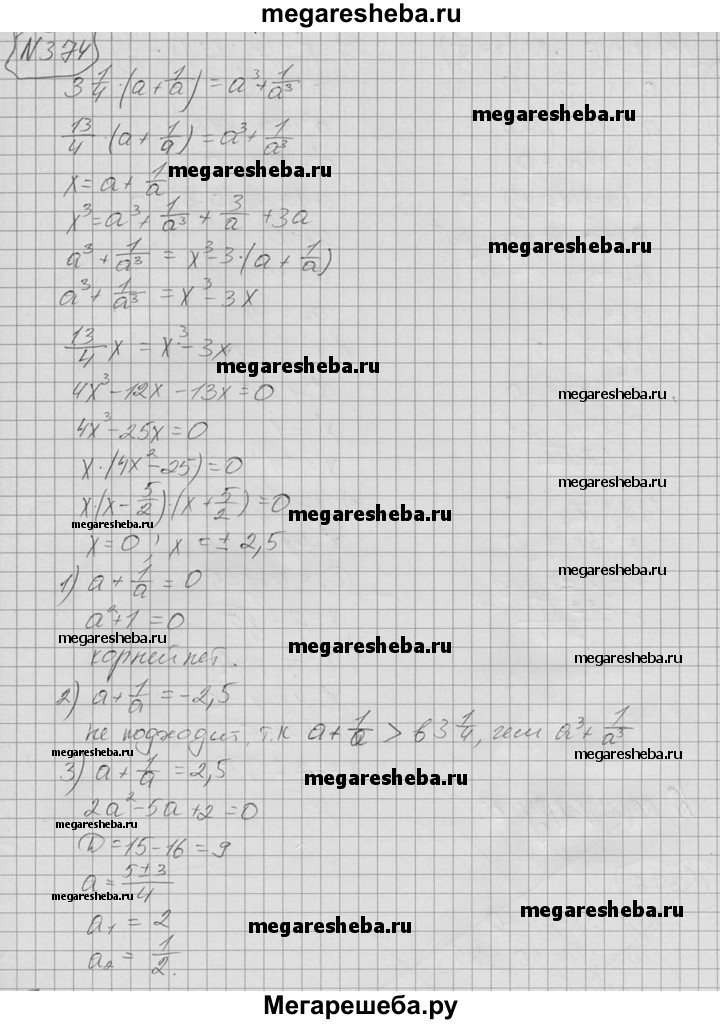 megaresheba.ru
N374
3 1/4 · (a + 1/a) = a³ + 1/a³
megaresheba.ru
13/4 · (a + 1/a) = a³ + 1/a³
megaresheba.ru
x = a + 1/a
x³ = a³ + 1/a³ + 3/a + 3a
megaresheba.ru
a³ + 1/a³ = x³ - 3 · (a + 1/a)
a³ + 1/a³ = x³ - 3x
13/4 x = x³ - 3x
megaresheba.ru
4x³ - 12x - 13x = 0
megaresheba.ru
4x³ - 25x = 0
x · (4x² - 25) = 0
megaresheba.ru
x · (x - 5/2) · (x + 5/2) = 0
megaresheba.ru
megaresheba.ru
x = 0 ; x = ± 2,5
megaresheba.ru
1) a + 1/a = 0
a² + 1 = 0
megaresheba.ru
megaresheba.ru
корней нет.
megaresheba.ru
2) a + 1/a = -2,5
не подходит, т.к a + 1/a > в 3 1/4, чем a³ + 1/a³
megaresheba.ru
3) a + 1/a = 2,5
megaresheba.ru
2a² - 5a + 2 = 0
megaresheba.ru
D = 15 - 16 = 9
a = 5 ± 3 / 4
megaresheba.ru
megaresheba.ru
a₁ = 2
megaresheba.ru
a₂ = 1/2.
Мегарешеба.ру